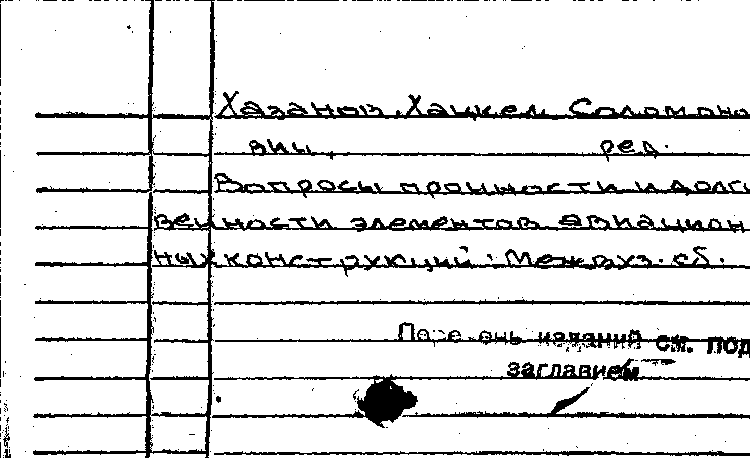 Хазанов, Хацкел Соломоно
вич, ред.
Вопросы прочности и долго
вечности элементов авиацион
ных конструкций: Межвуз. сб.
Перечень изданий см. под
заглавием